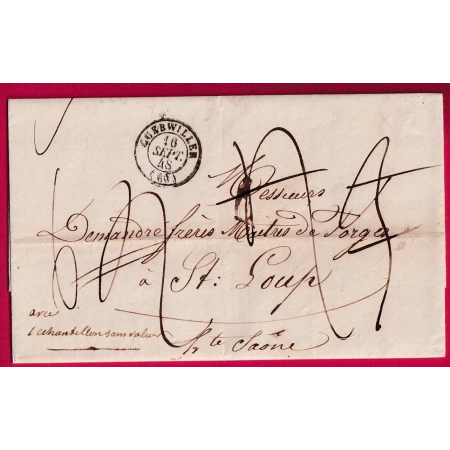 GUEBWILLER
16
SEPT.
48
(66)
Messieurs
Demandre frères Maitres de Forges
à St. Loup
hte Saône
avec
1 echantillon sans valeur